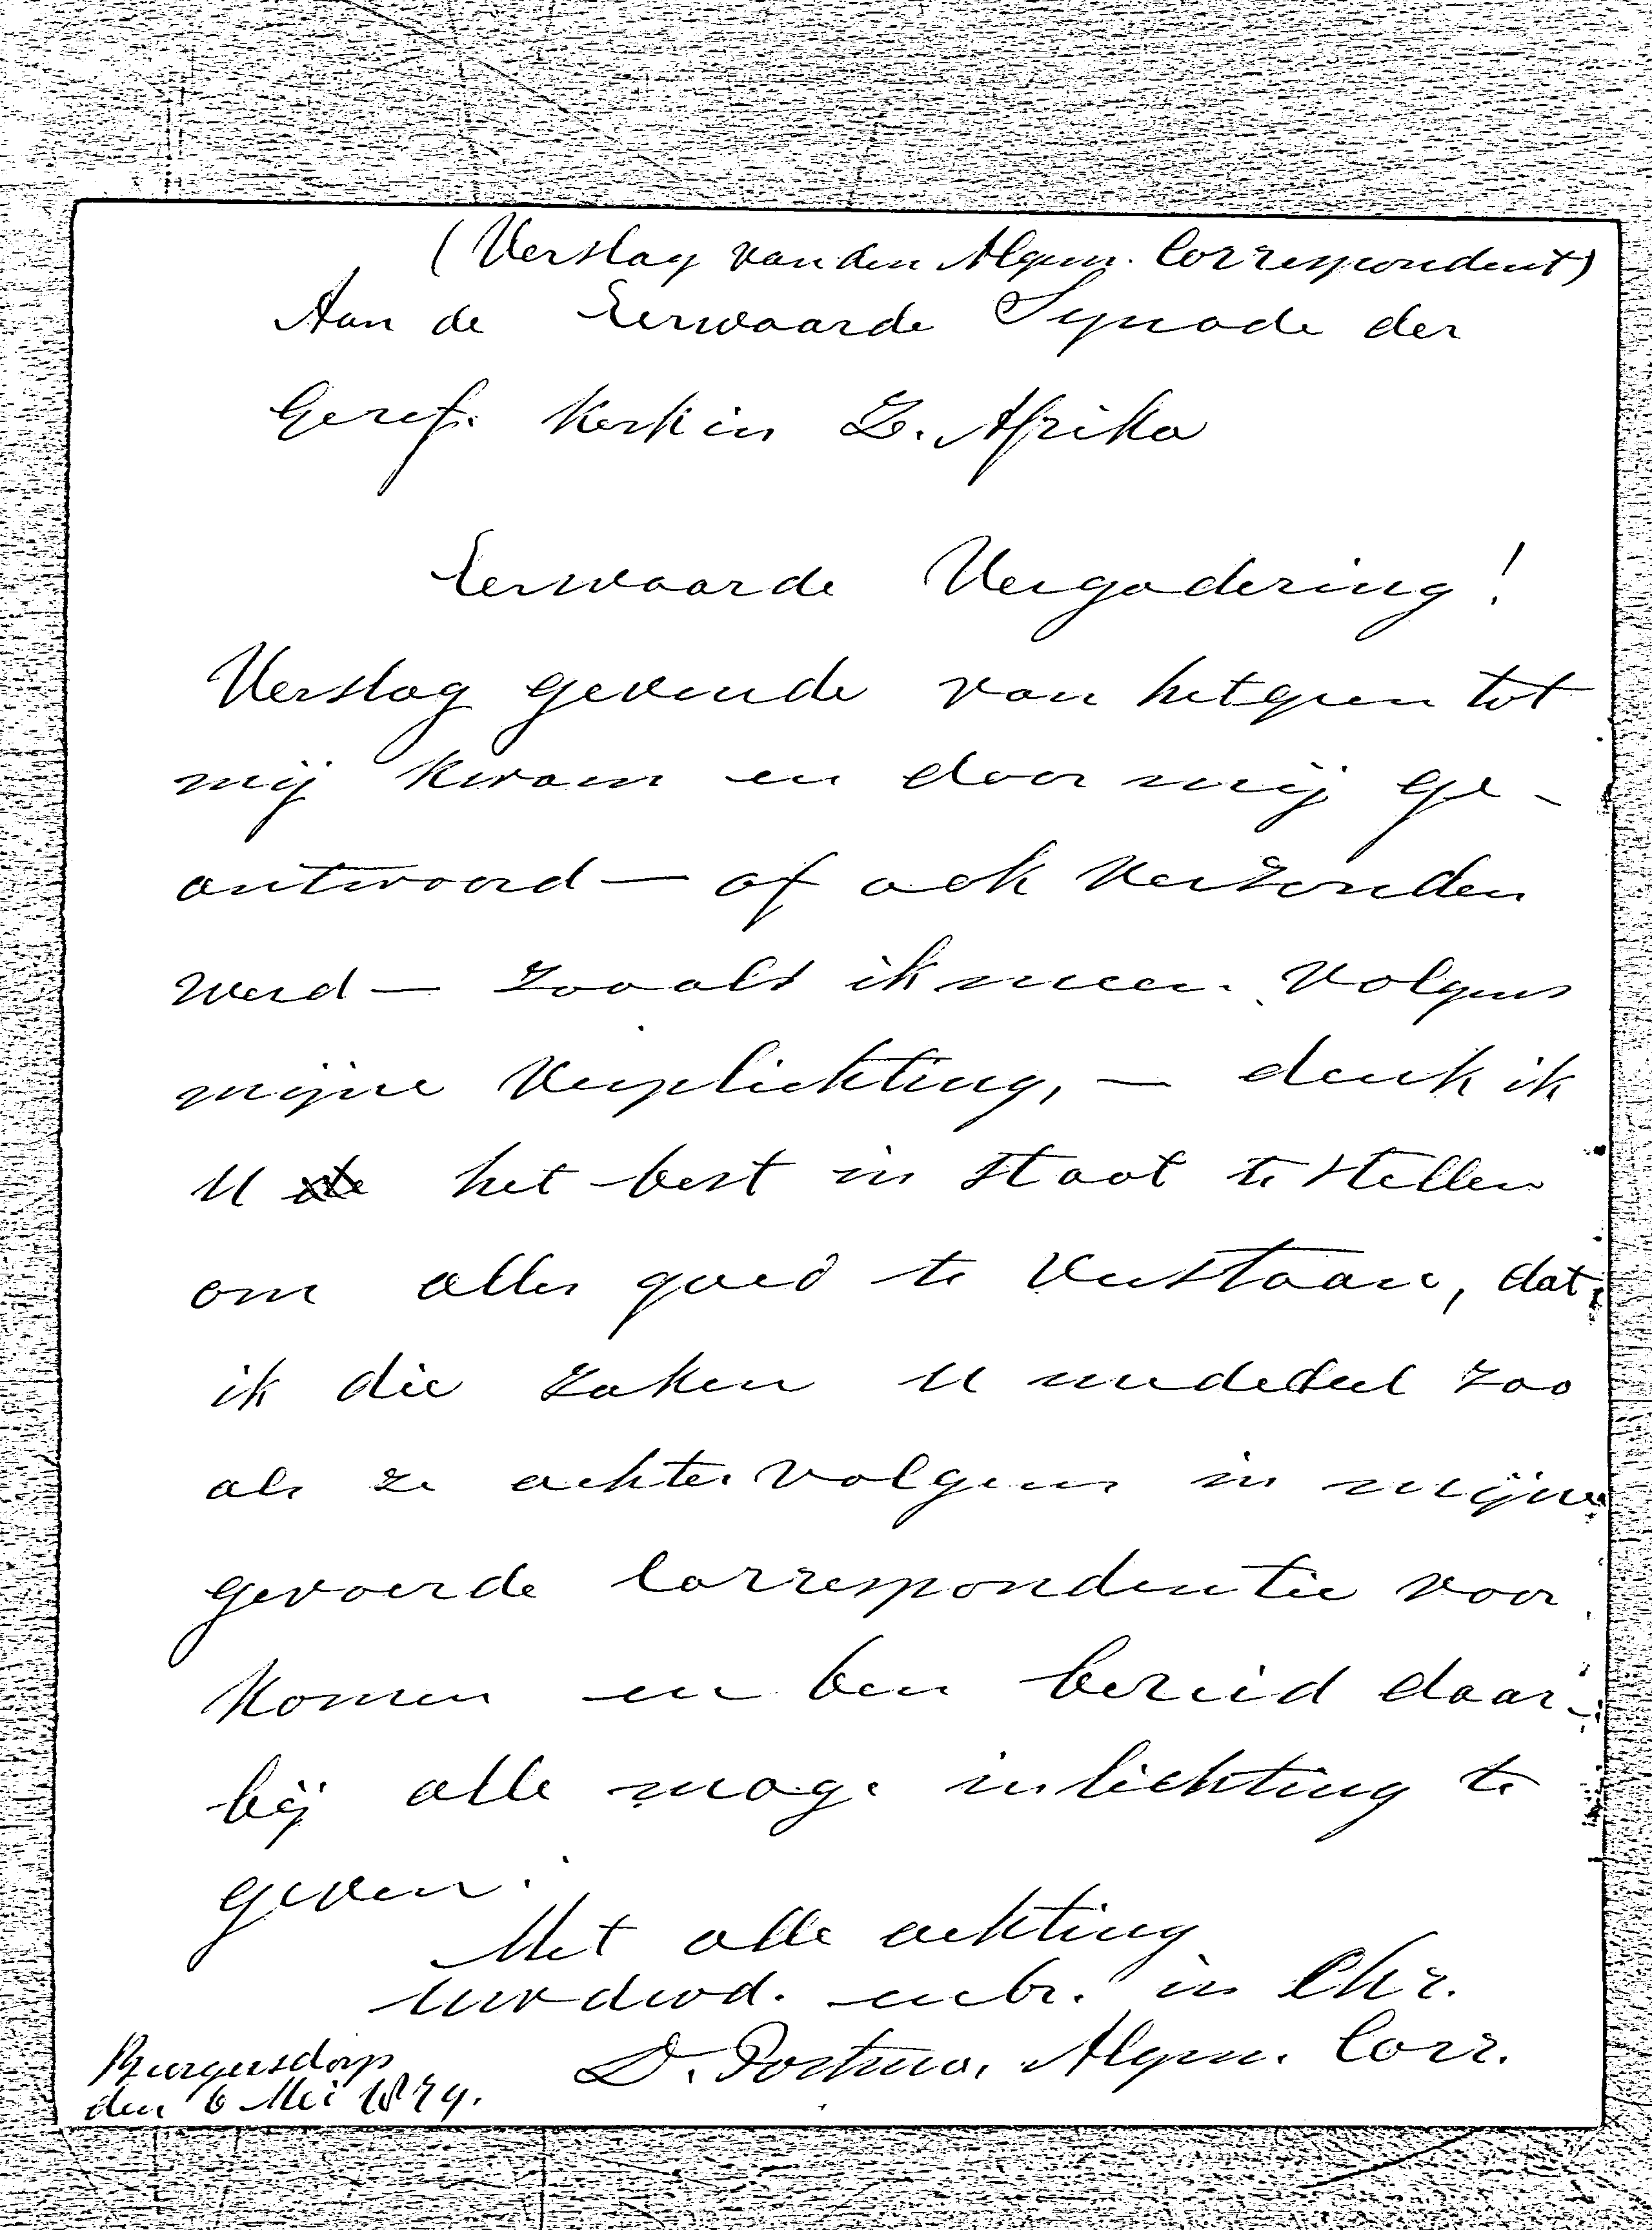 (Verslag van den Algem. Correspondent)
Aan de Eerwaarde Synode der
Geref. Kerk in Z. Afrika
Eerwaarde Vergadering!
Verslag gevende van hetgeen tot
mij kwam en door mij ge-
antwoord — of ook verzonden
werd — zooals ik meen. volgens
mijne verplichting, — denk ik
U het best in staat te stellen
om alles goed te verstaan, dat
ik die zaken U mededeel zoo
als ze achtervolgens in mijne
gevoerde Correspondentie voor
komen en ben bereid daar-
bij alle mog. inlichting te
geven.
Met alle achting
Uw dwd. en br. in Chr.
D. Postma. Algem. Corr.
Burgersdorp
den 6 Mei 1879.